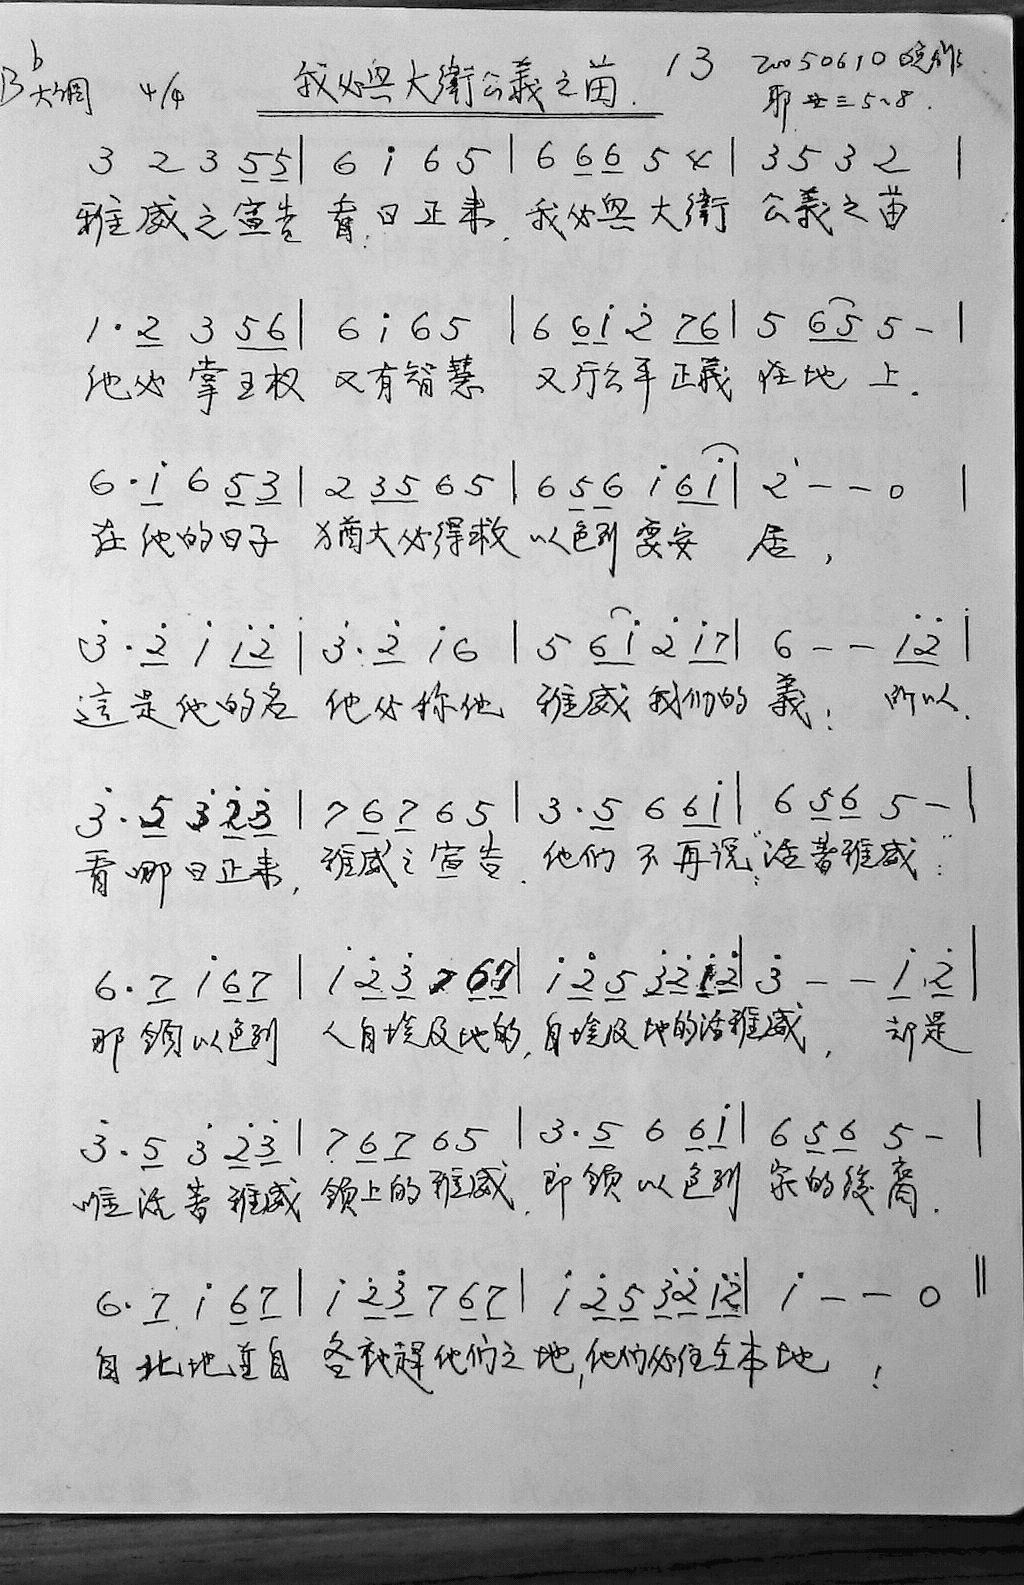 bB大調 4/4 我必與大衛公義之苗. 13 20050610晚作
耶廿三5~8.
3 2 3 5 5 | 6 i 6 5 | 6 6 6 5 4 | 3 5 3 2 |
雅威之宣告看.日正来.我必與大衛 公義之苗
1· 2 3 5 6 | 6 i 6 5 | 6 6 i 2̇ 7 6 | 5 6 5 5 – |
他必掌王权 又有智慧 又行公平正義 在地上.
6· i 6 5 3 | 2 3 5 6 5 | 6 5 6 i 6 i | 2̇ – – 0 |
在他的日子 猶大必得救 以色列要安 居,
3̇· 2̇ i i 2̇ | 3̇· 2̇ i 6 | 5 6 i 2̇ i 7 | 6 – – i 2̇ |
這是他的名 他必称他 雅威我们的義; 所以.
3̇· 5 3̇ 2̇ 3̇ | 7 6 7 6 5 | 3· 5 6 6 i | 6 5 6 5 – |
看哪日正来, 雅威之宣告. 他们不再说:"活著雅威":
6· 7 i 6 7 | i 2̇ 3̇ 7 6 7 | i 2̇ 5 3̇ 2̇ i 2̇ | 3̇ – – i 2̇ |
那領以色列 人自埃及地的,自埃及地的活雅威, 却是
3̇· 5 3̇ 2̇ 3̇ | 7 6 7 6 5 | 3· 5 6 6 i | 6 5 6 5 – |
唯活著雅威 領上的雅威.即領以色列 家的後裔.
6· 7 i 6 7 | i 2̇ 3̇ 7 6 7 | i 2̇ 5 3̇ 2̇ i 2̇ | i – – 0 ‖
自北地並自 各被趕他们之地,他们必住在本地!